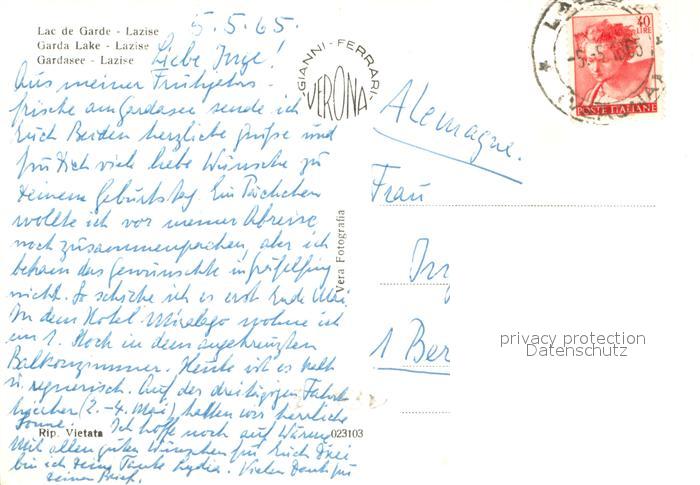 5.5.65.
Lac de Garde - Lazise
Garda Lake - Lazise
Gardasee - Lazise
Liebe Inge!
Aus meiner Frühjahrs-
frische am Gardasee sende ich
Euch Beiden herzliche Grüße und
für Dich viele liebe Wünsche zu
Deinem Geburtstag. Ein Päckchen
wollte ich vor meiner Abreise
noch zusammenpacken, aber ich
bekam das Gewünschte in Gräfelfing
nicht. So schicke ich es erst Ende Mai.
In dem Hotel Miralago wohne ich
im 1. Stock in dem angekreuzten
Balkonzimmer. Heute ist es kalt
u. regnerisch. Auf der dreitägigen Fahrt
hierher (2.-4. Mai) hatten wir herrliche
Sonne. Ich hoffe noch auf Wärme.
Mit allen guten Wünschen für Euch Drei
bin ich Deine Tante Lydia. Vielen Dank für
Deinen Brief.
Rip. Vietata
023103
GIANNI-FERRARI-
VERONA
Vera Fotografia
40
LIRE
POSTE ITALIANE
Alemagne.
Frau
1 Ber
privacy protection
Datenschutz